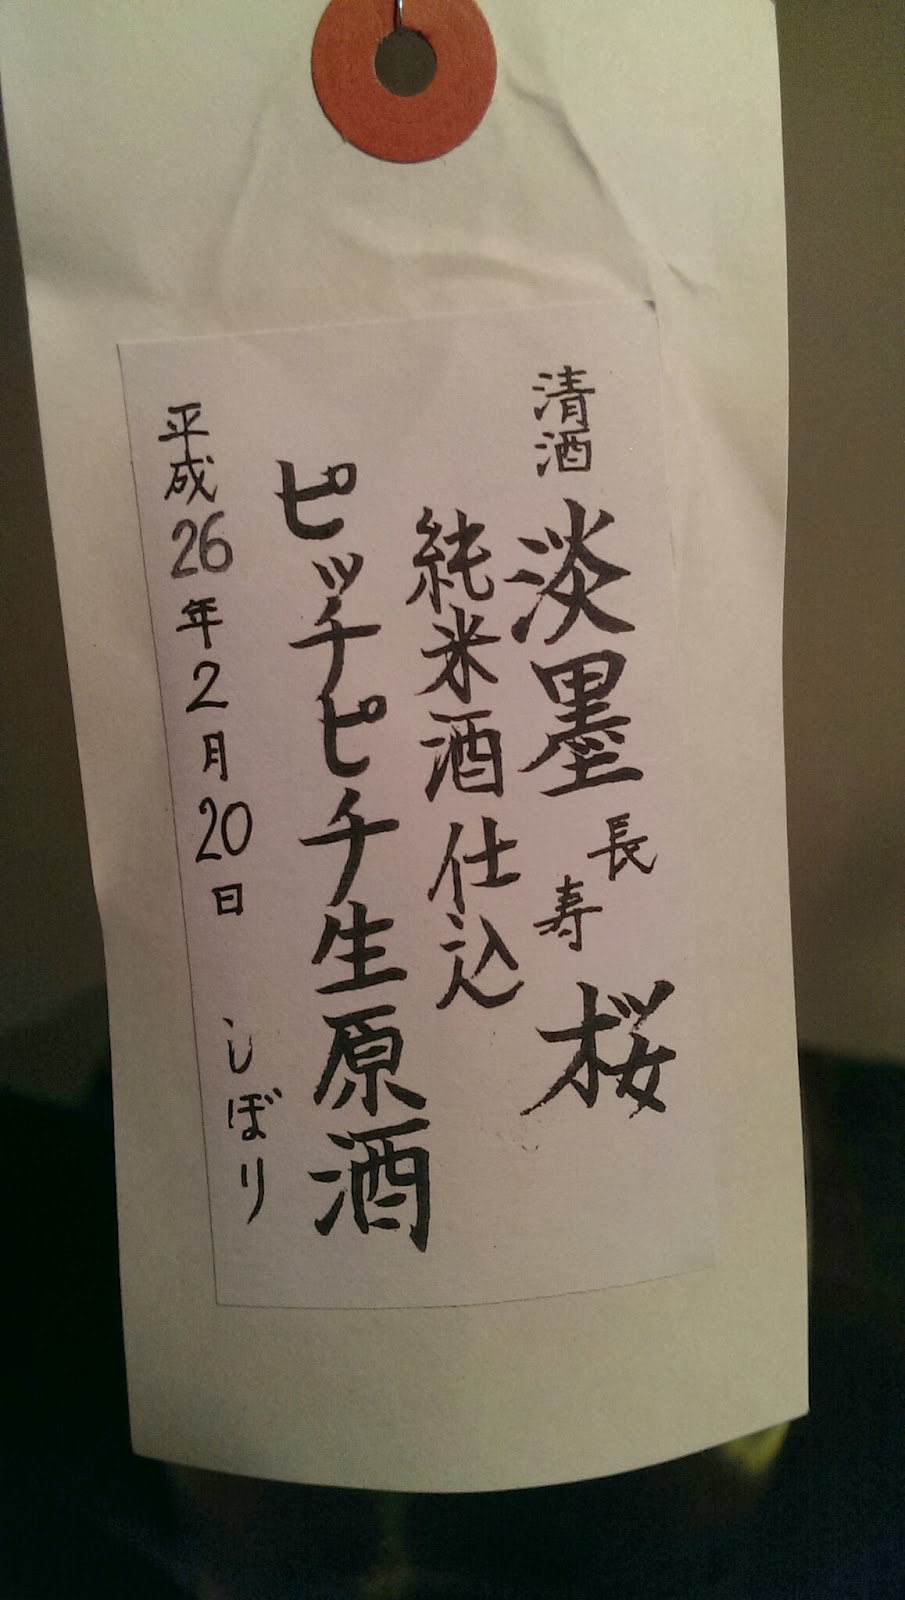 清酒 淡墨 長寿 桜
純米酒仕込
ピッチピチ生原酒
平成26年2月20日 しぼり